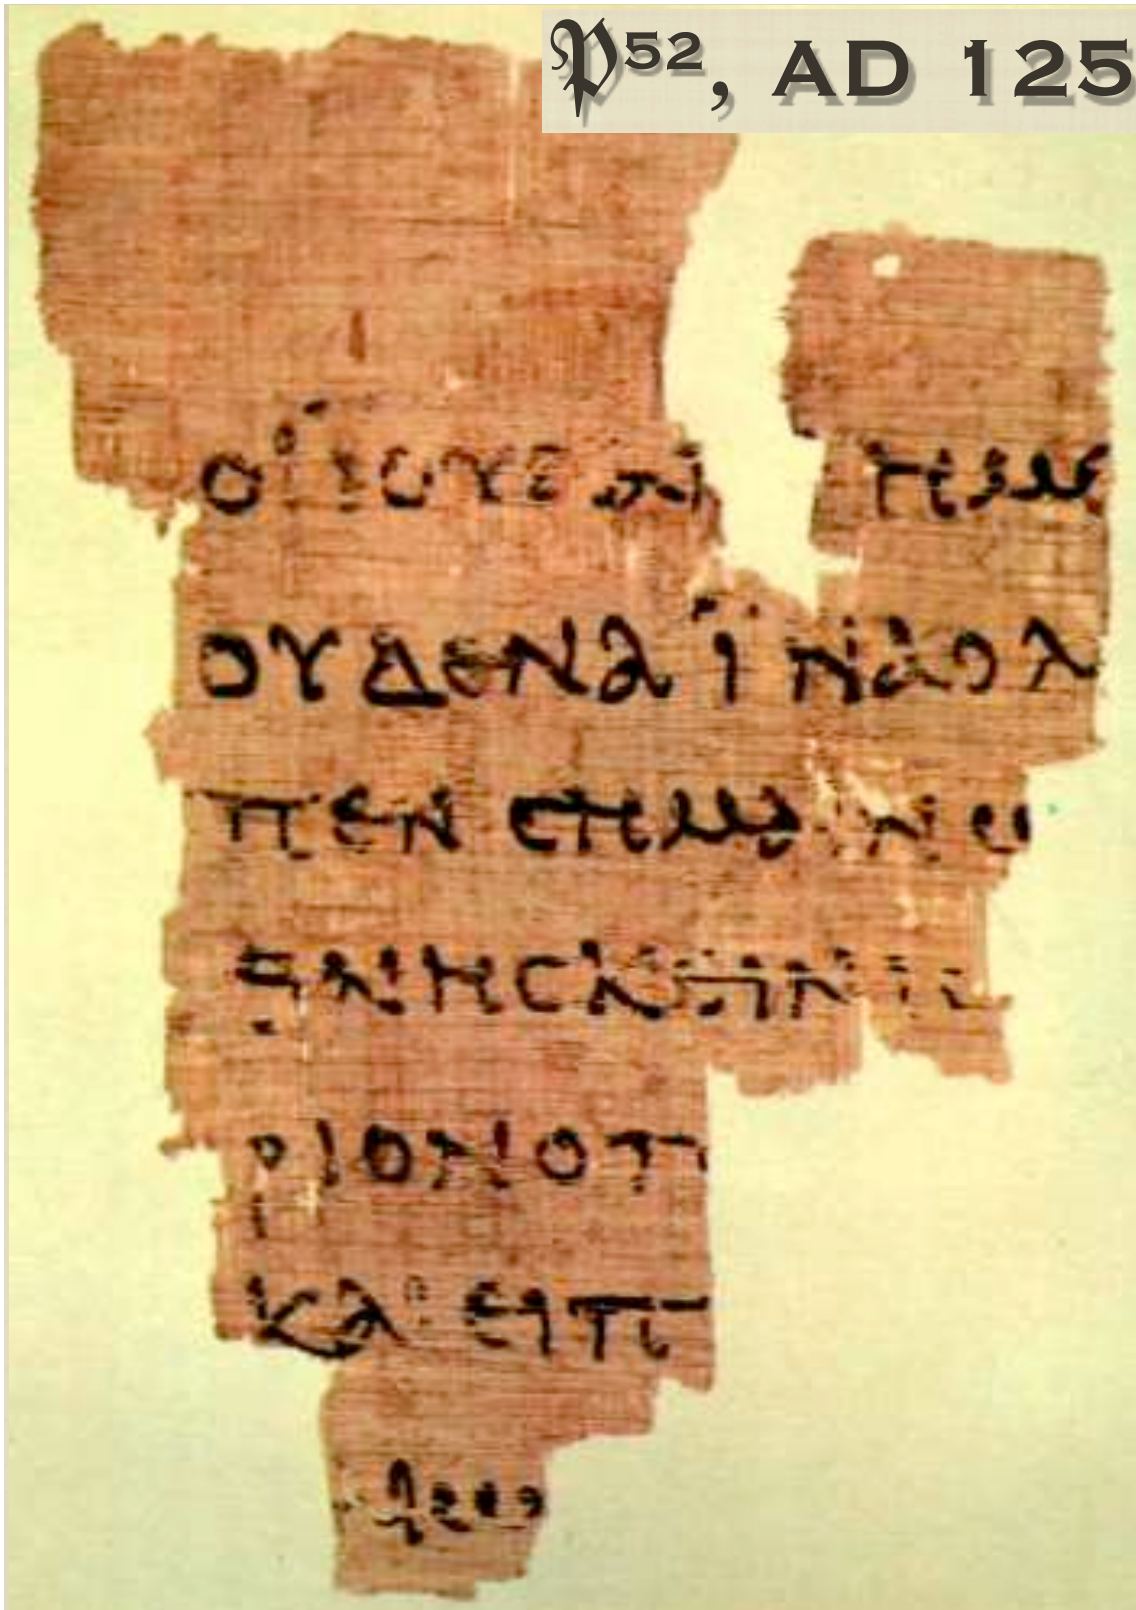 𝔓52, AD 125
ΟΙ ΙΟΥΔΑΙ ΗΜΕ
ΟΥΔΕΝΑ ΪΝΑ Ο Λ
ΠΕΝ CΗΜΑΙΝΩ
ΘΝΗCΚΕΙΝ ΙC
ΡΙΟΝ Ο Π
ΚΑΙ ΕΙΠ